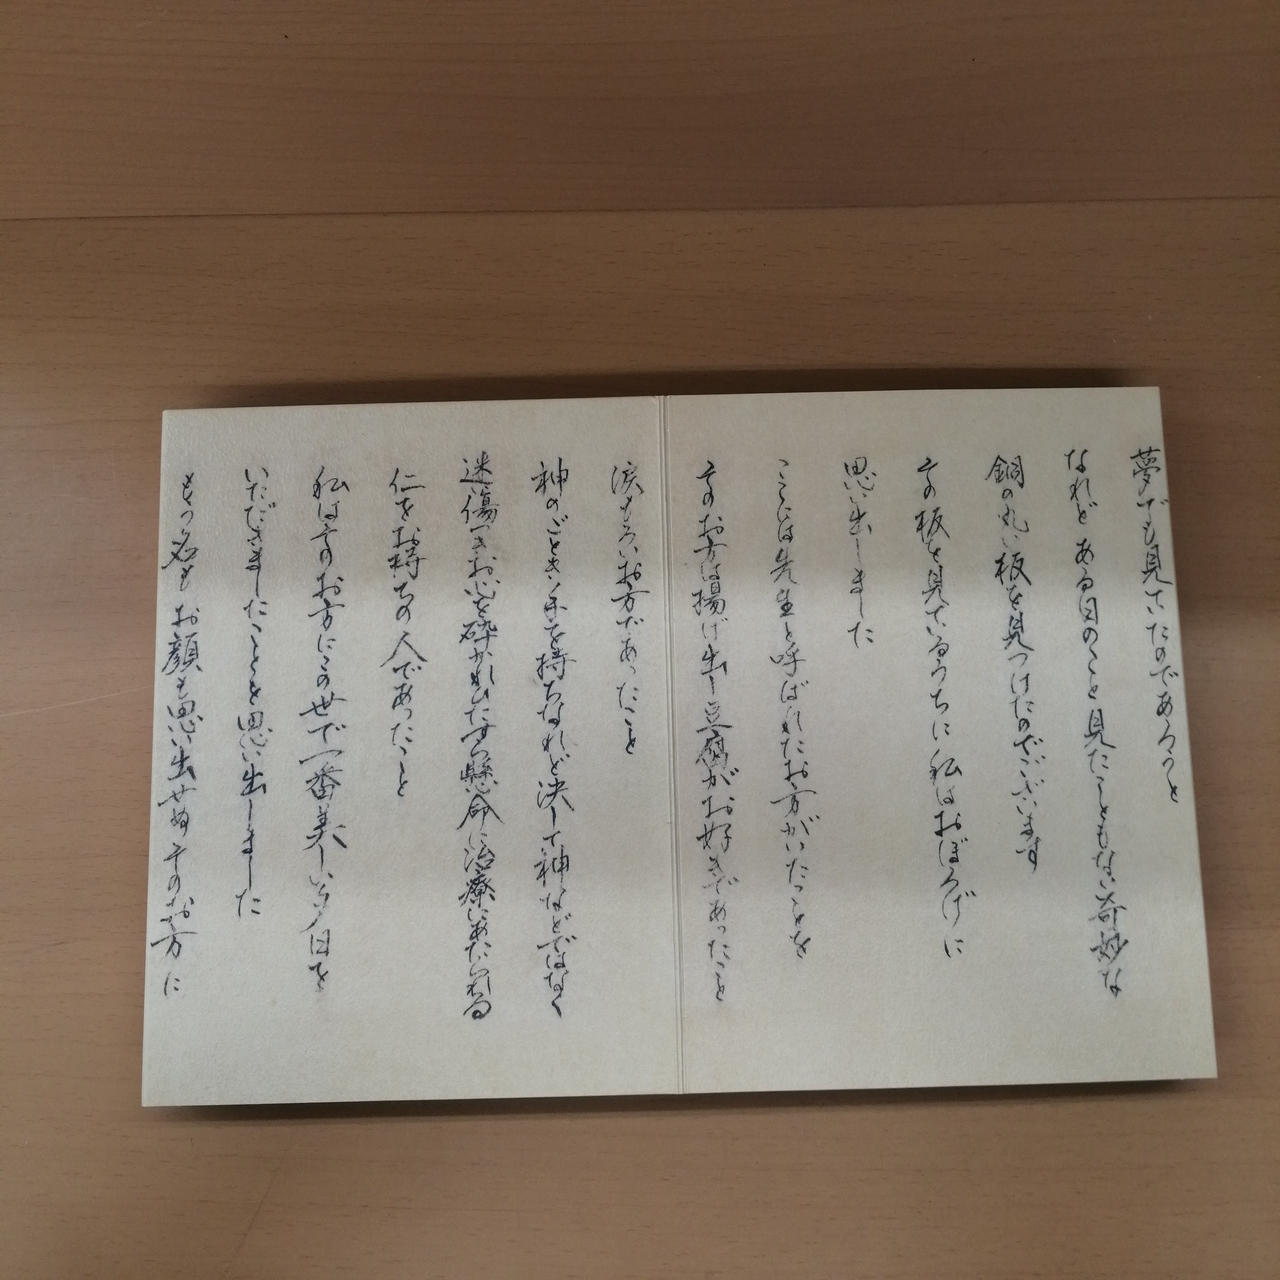 夢でも見ていたのであろうと
なれど ある日のこと 見たこともない奇妙な
銅の丸い板を見つけたのでございます
その板を見ているうちに 私はおぼろげに
思い出しました
ここには先生と呼ばれたお方がいたことを
そのお方は揚げ出し豆腐がお好きであったこと
涙もろいお方であったこと
神のごとき手を持ちなれど決して神などではなく
迷い傷つきお心を砕かれひたすら懸命に治療にあたられる
仁をお持ちの人であったこと
私はそのお方にこの世で一番美しい夕日を
いただきましたことを思い出しました
もう名も お顔も思い出せぬ そのお方に